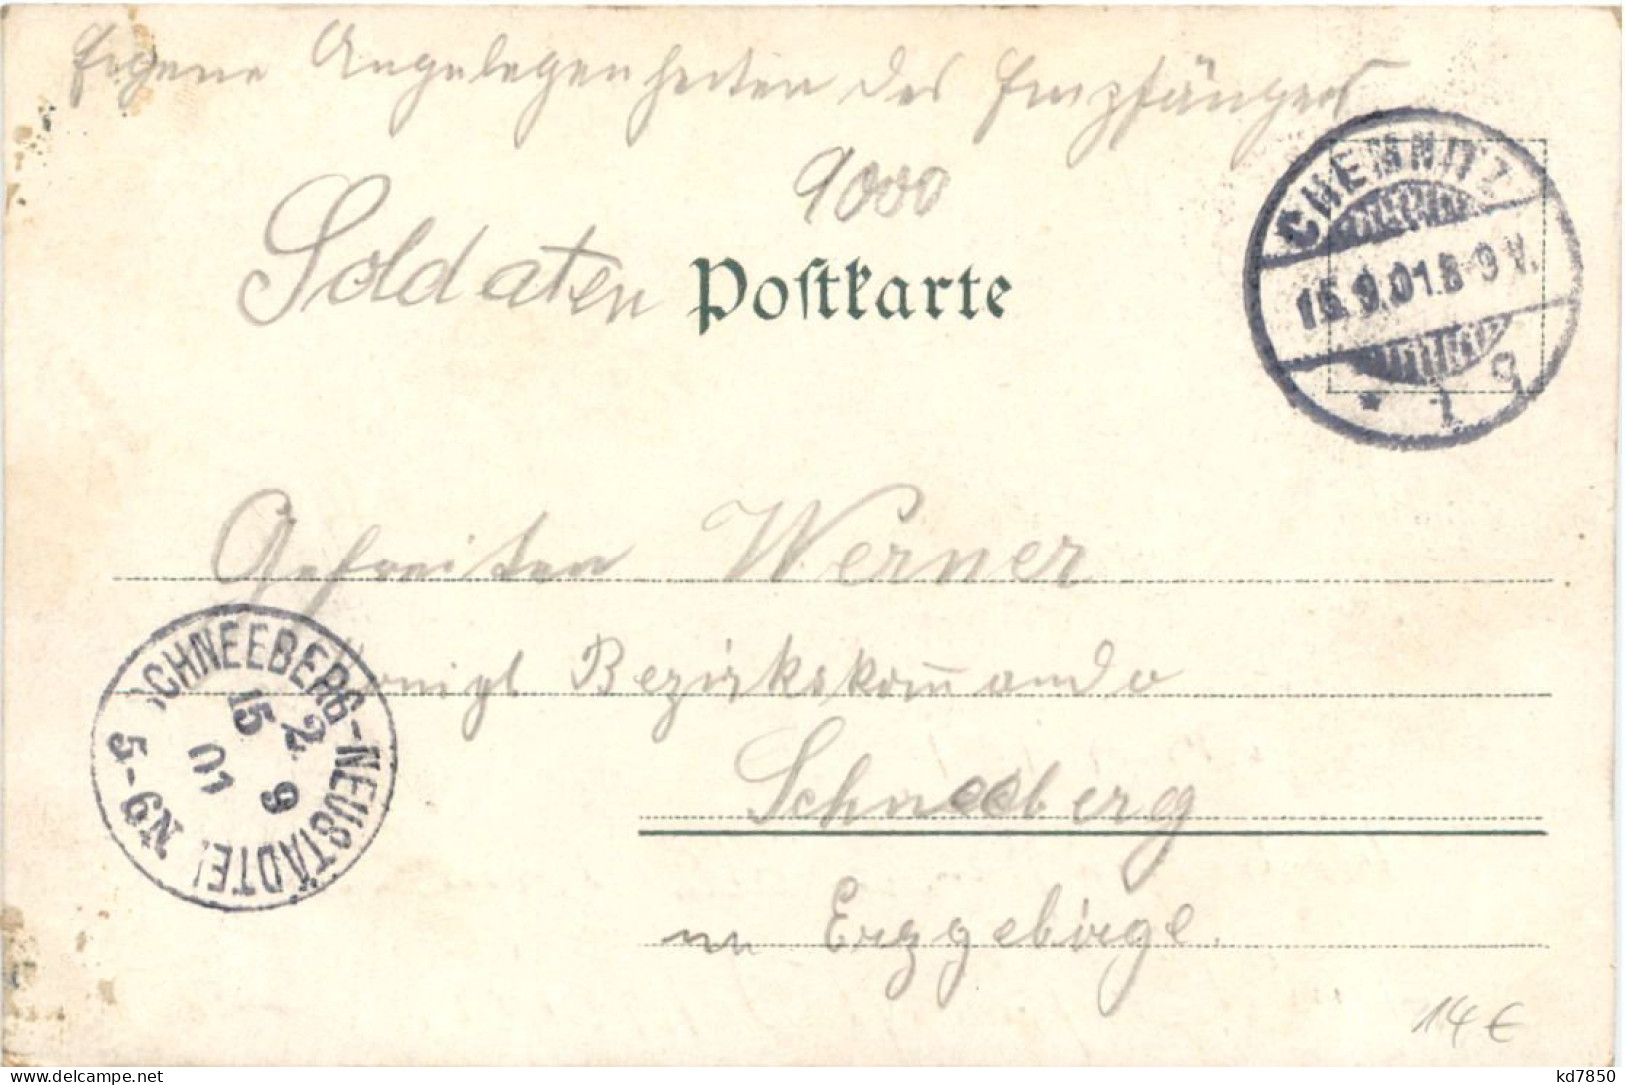 Eigene Angelegenheiten des Empfängers
9000
Soldaten Postkarte
CHEMNITZ
15.9.01.8-9 V.
* 1 g
Gefreiten Werner
Königl Bezirkskom̅ando
SCHNEEBERG-NEUSTÄDTEL
15 9 01
5-6N
2
Schneeberg
im Erzgebirge.
14 €
kd7850